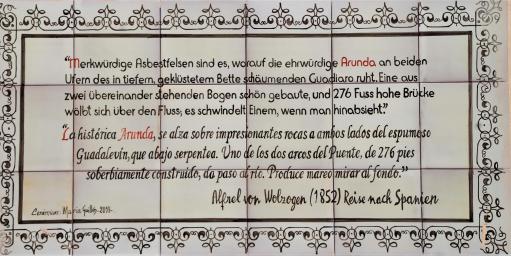 “Merkwürdige Asbestfelsen sind es, worauf die ehrwürdige Arunda an beiden
Ufern des in tiefem, geklüstetem Bette schäumenden Guadiaro ruht. Eine aus
zwei übereinander stehenden Bogen schön gebaute, und 276 Fuss hohe Brücke
wölbt sich über den Fluss; es schwindelt Einem, wenn man hinabsieht.”
“La histórica Arunda, se alza sobre impresionantes rocas a ambos lados del espumoso
Guadalevín, que abajo serpentea. Uno de los dos arcos del Puente, de 276 pies
soberbiamente construido, da paso al río. Produce mareo mirar al fondo.”
Alfred von Wolzogen (1852) Reise nach Spanien